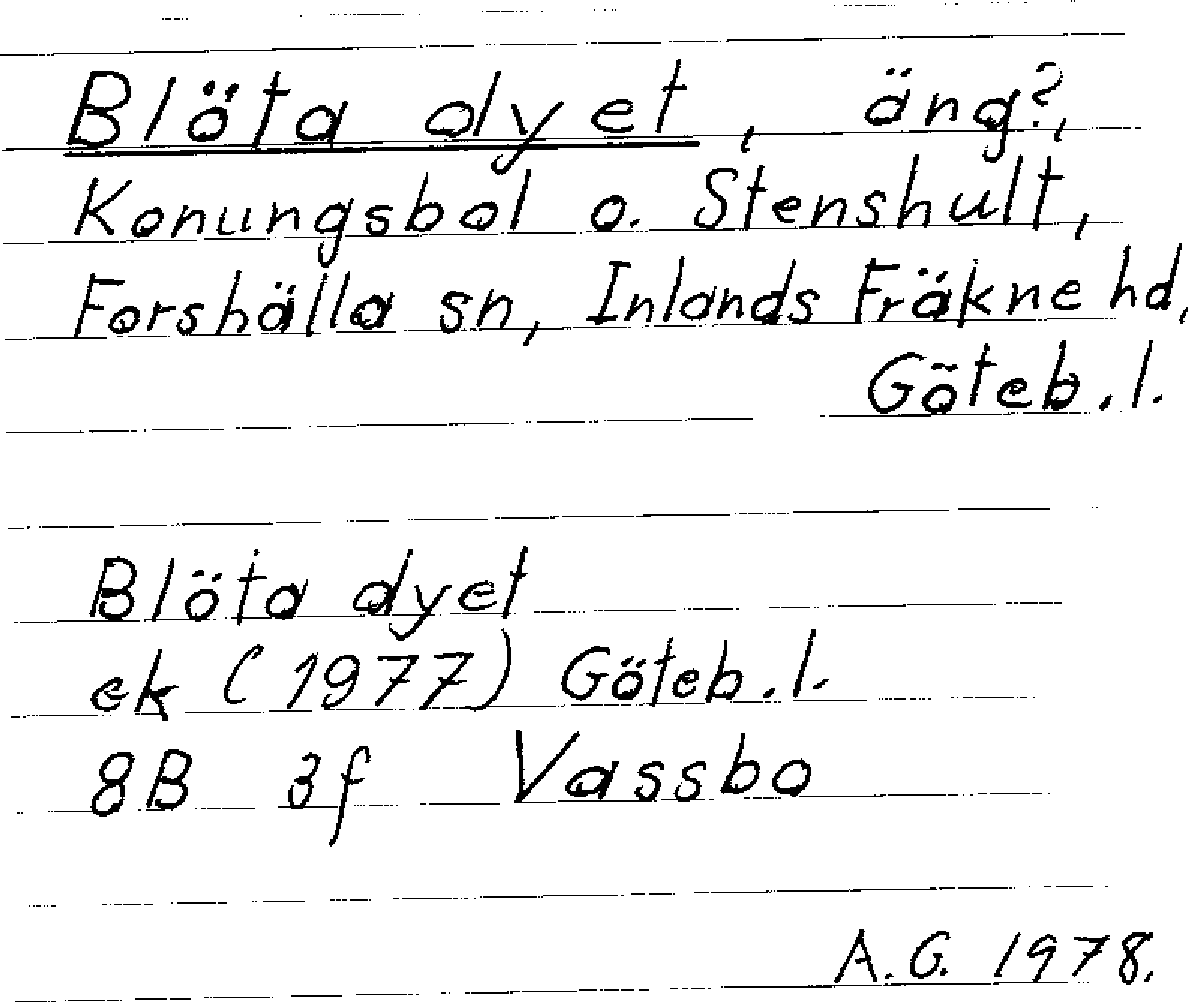 Blöta dyet, äng?,
Konungsbol o. Stenshult,
Forshälla sn, Inlands Fräkne hd,
Göteb. l.
Blöta dyet
ek (1977) Göteb. l.
8B 3f Vassbo
A.G. 1978.